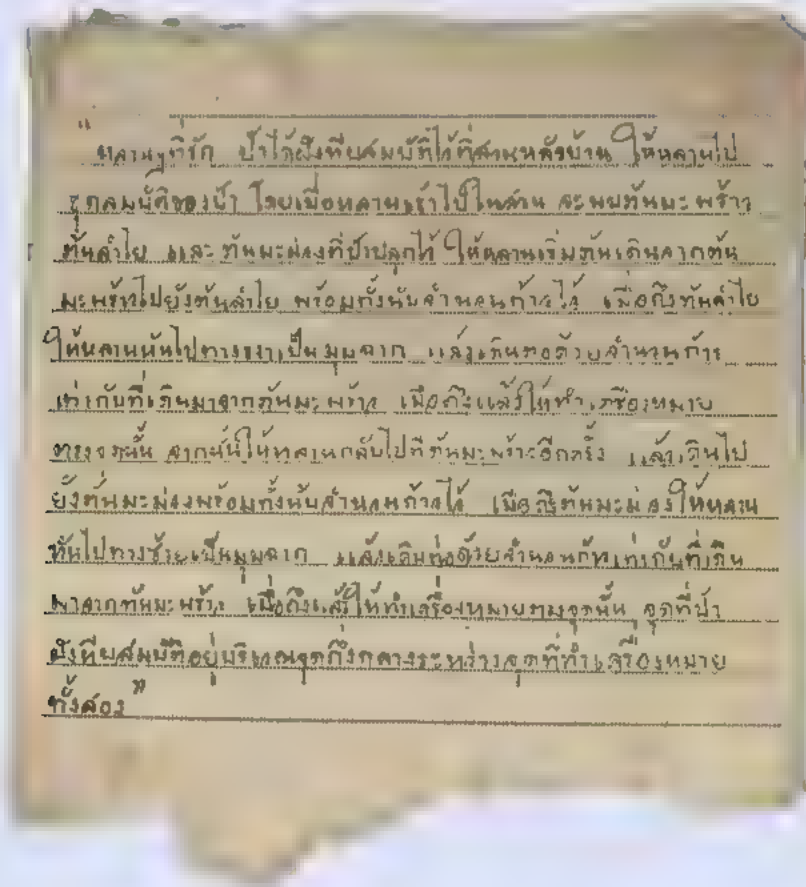 "หลานๆที่รัก ป้าได้ฝังทรัพย์สมบัติไว้ที่สวนหลังบ้าน ให้หลานไป
ขุดสมบัติของป้า โดยเมื่อหลานเข้าไปในสวน จะพบต้นมะพร้าว
ต้นลำไย และต้นมะม่วงที่ป้าปลูกไว้ ให้หลานเริ่มต้นเดินจากต้น
มะพร้าวไปยังต้นลำไย พร้อมทั้งนับจำนวนก้าวไว้ เมื่อถึงต้นลำไย
ให้หลานหันไปทางขวาเป็นมุมฉาก แล้วเดินต่อด้วยจำนวนก้าว
เท่ากับที่เดินมาจากต้นมะพร้าว เมื่อถึงแล้วให้ทำเครื่องหมาย
ตรงจุดนั้น จากนั้นให้หลานกลับไปที่ต้นมะพร้าวอีกครั้ง แล้วเดินไป
ยังต้นมะม่วงพร้อมทั้งนับจำนวนก้าวไว้ เมื่อถึงต้นมะม่วงให้หลาน
หันไปทางซ้ายเป็นมุมฉาก แล้วเดินต่อด้วยจำนวนก้าวเท่ากับที่เดิน
มาจากต้นมะพร้าว เมื่อถึงแล้วให้ทำเครื่องหมายตรงจุดนั้น จุดที่ป้า
ฝังทรัพย์สมบัติอยู่บริเวณจุดกึ่งกลางระหว่างจุดที่ทำเครื่องหมาย
ทั้งสอง"